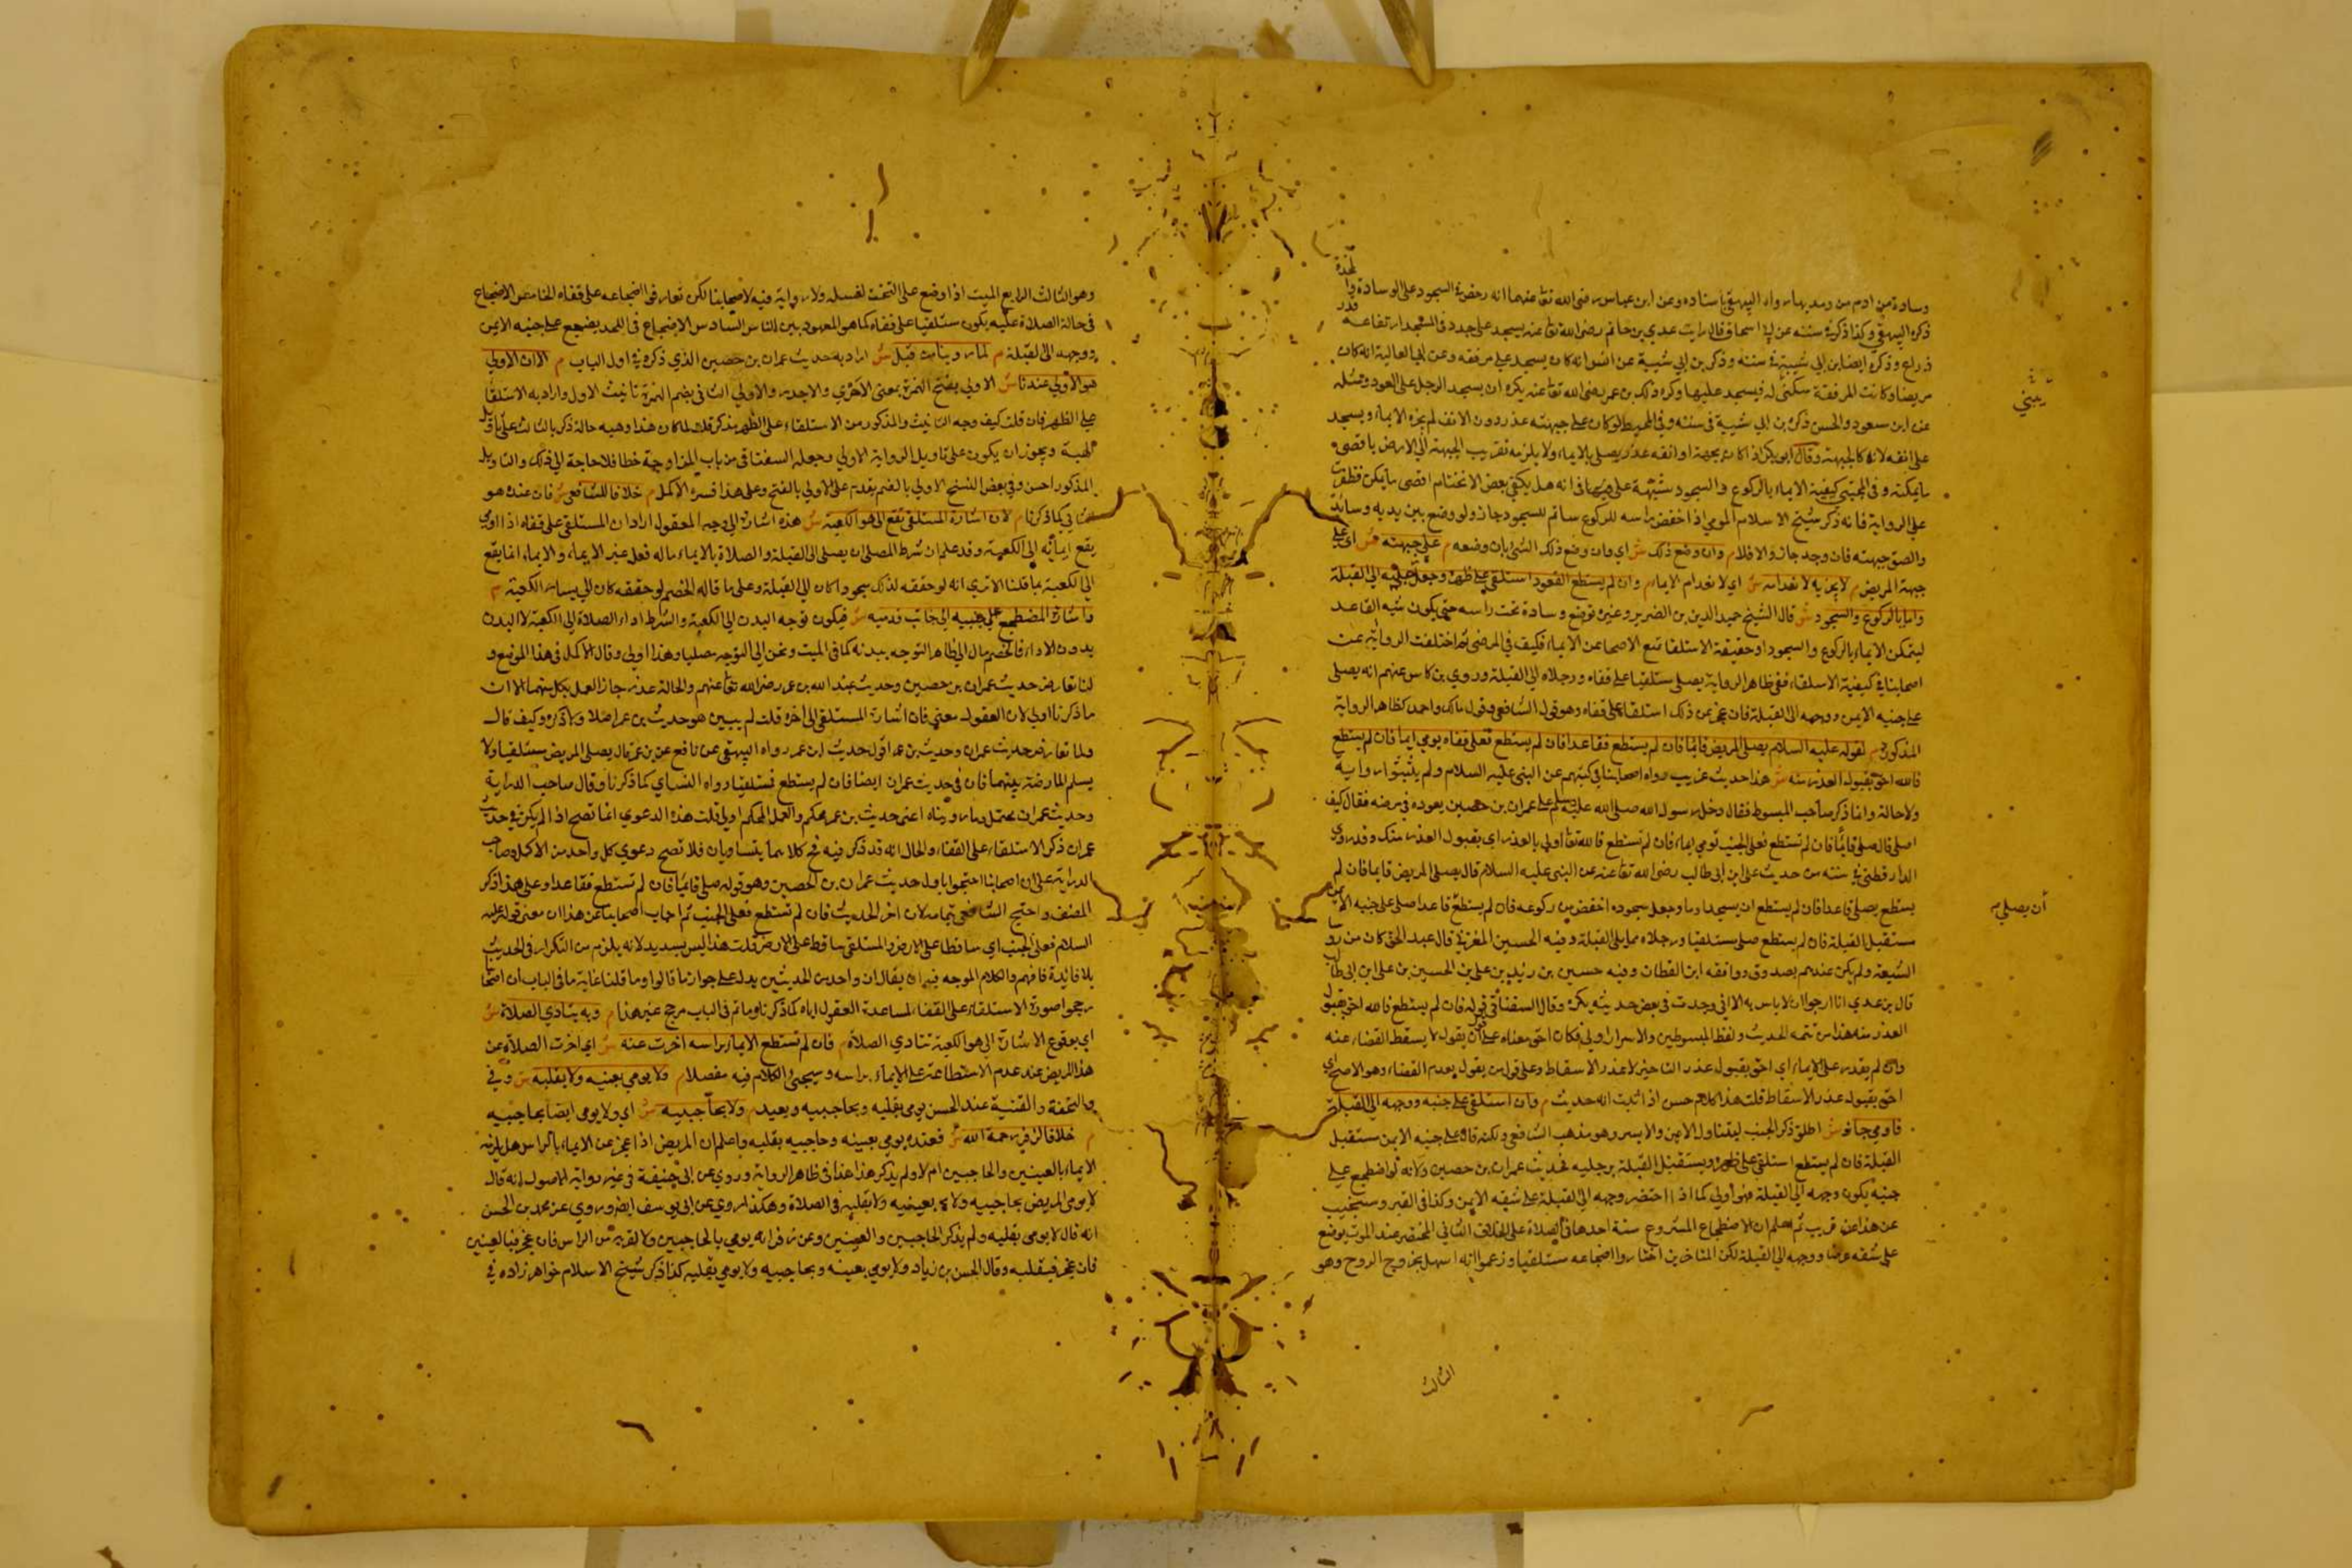 وسادة من ادم من رمد بها رواه البيهقي باسناده وعن ابن عباس رضى الله تعا عنهما انه رخص في السجود على الوسادة والمخدة
ذكره البيهقي وكذا ذكر في سننه عن ابي اسحاق قال رايت عدي بن حاتم رضى الله تعا عنه يسجد على جدار في المسجد ارتفاعه قدر
ذراع وذكره ايضا ابن ابي شيبة في سننه وذكر بن ابي شيبة عن انس انه كان يسجد على مرفقه وعن ابي العالية انه كان
مريضا وكانت المرفقة تثنى له فيسجد عليها وكره ذلك بن عمر رضى الله تعا عنه يكره ان يسجد الرجل على العود ومثله
عن ابن مسعود والحسن ذكره بن ابي شيبة في سننه وفي المحيط لو كان على جبهته عذر دون الانف لم يجزه الايماء ويسجد
على انفه لانه كالجبهة وقال ابو بكر اذا كان بجبهته او انفه عذر يصلي بالايماء ولا يلزمه تقريب الجبهة الى الارض باقصى
ما يمكنه وفي المجتبى كيفية الايماء بالركوع والسجود مشتبهة على في انه هل يكفي بعض الانحناء ام اقصى ما يمكن فظفرت
على الرواية فانه ذكر شيخ الاسلام المومي اذا خفض راسه للركوع ساتم للسجود جاز ولو وضع بين يديه وسائد
والصق جبهته فان وجد جاز والا فلا م وان وضع ذلك ش اي وان وضع ذلك الشئ بان وضعه م على جبهته ش اى على
جبهة المريض م لا يجزيه لانعدامه ش اي لانعدام الايماء م وان لم يستطع القعود استلقى على ظهره وجعل رجليه الى القبلة
واومأ بالركوع والسجود ش قال الشيخ حميد الدين بن الضرير وغيره توضع وسادة تحت راسه حتى يكون شبه القاعد
ليتمكن الايماء بالركوع والسجود اذ حقيقة الاستلقا تمنع الاصحا عن الايماء فكيف في المرضى ثم اختلفت الرواية عن
اصحابنا في كيفية الاستلقاء ففي ظاهر الرواية يصلي مستلقيا على قفاه ورجلاه الى القبلة وروي بن كاس عنهم انه يصلى
على جنبه الايمن ووجهه الى القبلة فان عجز عن ذلك استلقا على قفاه وهو قول الشافعي وقول مالك واحمد كظاهر الرواية
المذكورة م لقوله عليه السلام يصلى المريض قائما فان لم يستطع فقاعدا فان لم يستطع فعلى قفاه يومي ايما فان لم يستطع
فالله احق بقبول العذر منه ش هذا حديث غريب رواه اصحابنا في كتبهم عن النبي عليه السلام ولم يثبتوا روايه
ولا حالة وانما ذكر صاحب المبسوط فقال دخل رسول الله صلى الله عليه وسلم على عمران بن حصين يعوده في مرضه فقال كيف
اصلى قال صلى قائما فان لم تستطع فعلى الجنب تومي ايماء فان لم تستطع فالله تعا أولى بالعذر اي بقبول العذر منك وقد روى
الدارقطني في سننه من حديث على ابن ابي طالب رضى الله تعا عنه عن النبي عليه السلام قال يصلى المريض قايما فان لم
يستطع يصلى قاعدا فان لم يستطع ان يسجد اوما وجعل سجوده اخفض من ركوعه فان لم يستطع قاعدا صلى على جنبه الايمن
مستقبل القبلة فان لم يستطع صلى مستلقيا ورجلاه مما يلى القبلة وفيه الحسين العرني قال عبد الحق كان من
الشيعة ولم يكن عندهم بصدوق ووافقه ابن القطان وفيه حسين بن زيد بن علي بن الحسين بن على ابن ابى طالب
قال بن عدي انا ارجو ان لا باس به الا اني وجدت في بعض حديثه يكره وقال السغناقي قوله فان لم يستطع فالله احق بقبول
العذر منه هذا من تتمه الحديث ولفظ المبسوطين والاسرار اولى فكان احق معناه على ان يقول لا يسقط القضاء عنه
وان لم يقدر على الايماء اي احق بقبول عذر التاخير لا عذر الاسقاط وعلى قول من يقول بعدم القضاء وهو الاصح اي
احق بقبول عذر الاسقاط قلت هذا كلام حسن اذا ثبت انه حديث م وان استلقى على جنبه ووجهه الى القبلة
فاومى جاز ش اطلق ذكر الجنب ليتناول الايمن والايسر وهو مذهب الشافعي ولكنه قال على جنبه الايمن مستقبل
القبلة فان لم يستطع استلقى على ظهره ويستقبل القبلة برجليه لحديث عمران بن حصين ولانه لو اضطجع على
جنبه يكون وجهه الى القبلة فهو أولى كما اذا احتضر وجهه الى القبلة على شقه الايمن وكذا في القبر وسنجيب
عن هذا عن قريب ثم اعلم ان الاضطجاع المشروع ستة احدها في الصلاة على الخلاف الثاني المحتضر عند الموت يوضع
على شقه عرضا ووجهه الى القبلة لكن المتاخرين اختاروا اضجاعه مستلقيا وزعموا انه اسهل بخروج الروح وهو
الثالث
أن يصلي م
وهو الثالث الرابع الميت اذا وضع على التخت لغسله ولا رواية فيه لاصحابنا لكن تعارفوا اضجاعه على قفاه الخامس الاضجاع
في حالة الصلاة عليه يكون مستلقيا على قفاه كما هو المعهود بين الناس السادس الاضجاع في اللحد يضجع على جنبه الايمن
ووجهه الى القبلة م لما روينا من قبل ش اراد به حديث عمران بن حصين الذي ذكره في اول الباب م الا ان الاولى
هو الأولى عندنا ش الاولى بفتح الهمزة بمعنى الاحرى والاجدر والاولى الثاني بضم الهمزة تانيث الاول واراد به الاستلقا
على الظهر فان قلت كيف وجه التانيث والمذكور من الاستلقاء على الظهر مذكر قلت لما كان هذا وهيه حالة ذكر بالتانيث على تاويل
الهيئة ويجوز ان يكون على تاويل الرواية الاولى وجعله السغناقي من باب خطا فلا حاجة الى ذلك والتاويل
المذكور احسن وفي بعض النسخ الاولى بالضم يقدم على الاولى بالفتح وعلى هذا فسره الاكمل م خلافا للشافعي ش فان عنده هو
كما ذكرنا م لان اشارة المستلقي تقع الى هوا الكعبة ش هذه اشارة الى وجه المعقول اراد ان المستلقى على قفاه اذا اومى
يقع ايمائه الى الكعبة وقد علم ان شرط المصلى ان يصلى الى القبلة والصلاة بالايماء ماله فعل غير الايماء والايماء انما يقع
الى الكعبة بما قلنا الا ترى انه لو حققه لذلك سجودا كان الى القبلة وعلى ما قاله الخصم لو حققه كان الى يسار الكعبة م
واشارة المضطجع على جنبيه الى جانب قدميه ش فيكون توجه البدن الى الكعبة والشرط اداء الصلاة الى الكعبة لا البدن
بدون الاداء فالخصم مال الى ظاهر التوجه ببدنه كما في الميت ونحن الى التوجه مصليا وهذا اولى وقال الاكمل في هذا الموضع و
لنا تعارض حديث عمران بن حصين وحديث عبد الله بن عمر رضى الله تعا عنهم والحالة عذر جاز العمل بكل منهما الا ان
ما ذكرنا اولى لان المعقول معنى فان اشارة المستلقى الى اخره قلت لم يبين هو حديث بن عمر اصلا وما ذكره وكيف قال
ولما تعارض حديث عمران وحديث بن عمر اقول حديث ابن عمر رواه البيهقي عن نافع عن بن عمر قال يصلى المريض مستلقيا ولا
يسلم المعارضة بينهما فان في حديث عمران ايضا فان لم يستطع فمستلقيا رواه النساي كما ذكرنا وقال صاحب الدراية
وحديث عمران محتمل وما رويناه اعنى حديث بن عمر محكم والعمل بالمحكم اولى قلت هذه الدعوى انما تصح اذا لم يكن في حديث
عمران ذكر الاستلقاء على القفاء والحال انه قد ذكر فيه فح كلاهما يتساويان فلا تصح دعوى كل واحد من الاكمل وصاحب
الدراية على ان اصحابنا احتجوا باول حديث عمران بن الحصين وهو قوله صلى قائما فان لم تستطع فقاعدا وعلى هذا ذكر
المصنف واحتج الشافعي بتمامه لان اخر الحديث فان لم تستطع فعلى الجنب ثم اجاب اصحابنا عن هذا ان معنى قوله عليه
السلام فعلى الجنب اي ساقطا على الارض والمستلقى ساقط على الارض قلت هذا ليس بسديد لانه يلزم من التكرار في الحديث
بلا فائدة فافهم والكلام الموجه فيه ان يقال ان واحد من الحديثين يدل على جواز ما قالوا وما قلنا غاية ما في الباب ان اصحابنا
رجحوا صورة الاستلقاء على القفا لمساعدة المعقول اياه كما ذكرنا وما تم في الباب مرجح غير هذا م وبه يتادى الصلاة ش
اي بوقوع الاشارة الى هوا الكعبة تتادي الصلاة م فان لم تستطع الايماء براسه اخرت عنه ش اي اخرت الصلاة عن
هذا المريض عند عدم الاستطاعة على الايماء براسه وسيجى الكلام فيه مفصلا م ولا يومي بعينيه ولا بقلبه ش وفي
والتحفة والقنية عند الحسن يومي بقلبه وبحاجبيه ويعيد م ولا بحاجبيه ش اي ولا يومي ايضا بحاجبيه
م خلافا لزفر رحمه الله ش فعنده يومي بعينه وحاجبيه بقلبه واعلم ان المريض اذا عجز عن الايماء بالراس هل يلزمه
الايماء بالعينين والحاجبين ام لا ولم يذكر هذا عندنا في ظاهر الرواية وروي عن ابى حنيفة في غير رواية الاصول انه قال
لا يومى المريض بحاجبيه ولا بعينيه ولا بقلبه في الصلاة وهكذا روي عن ابى يوسف ايضا وروي عن محمد بن الحسن
انه قال لا يومى بقلبه ولم يذكر الحاجبين والعينين وعن زفر انه يومي بالحاجبين ولا لقربه من الراس فان عجز فبالعينين
فان عجز فبقلبه وقال الحسن بن زياد ولا يومي بعينه وبحاجبيه ولا يومي بقلبه كذا ذكر شيخ الاسلام خواهر زاده في